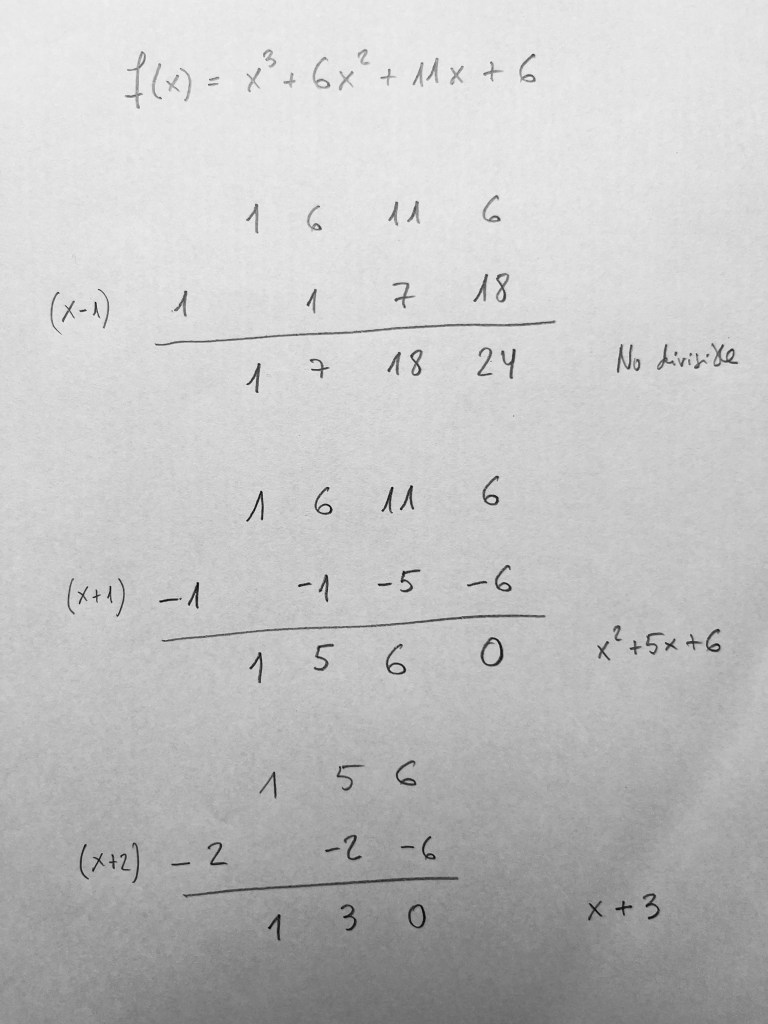 f(x) = x³ + 6x² + 11x + 6
1 6 11 6
(x-1) 1 1 7 18
1 7 18 24 No divisible
1 6 11 6
(x+1) -1 -1 -5 -6
1 5 6 0 x²+5x+6
1 5 6
(x+2) -2 -2 -6
1 3 0 x + 3